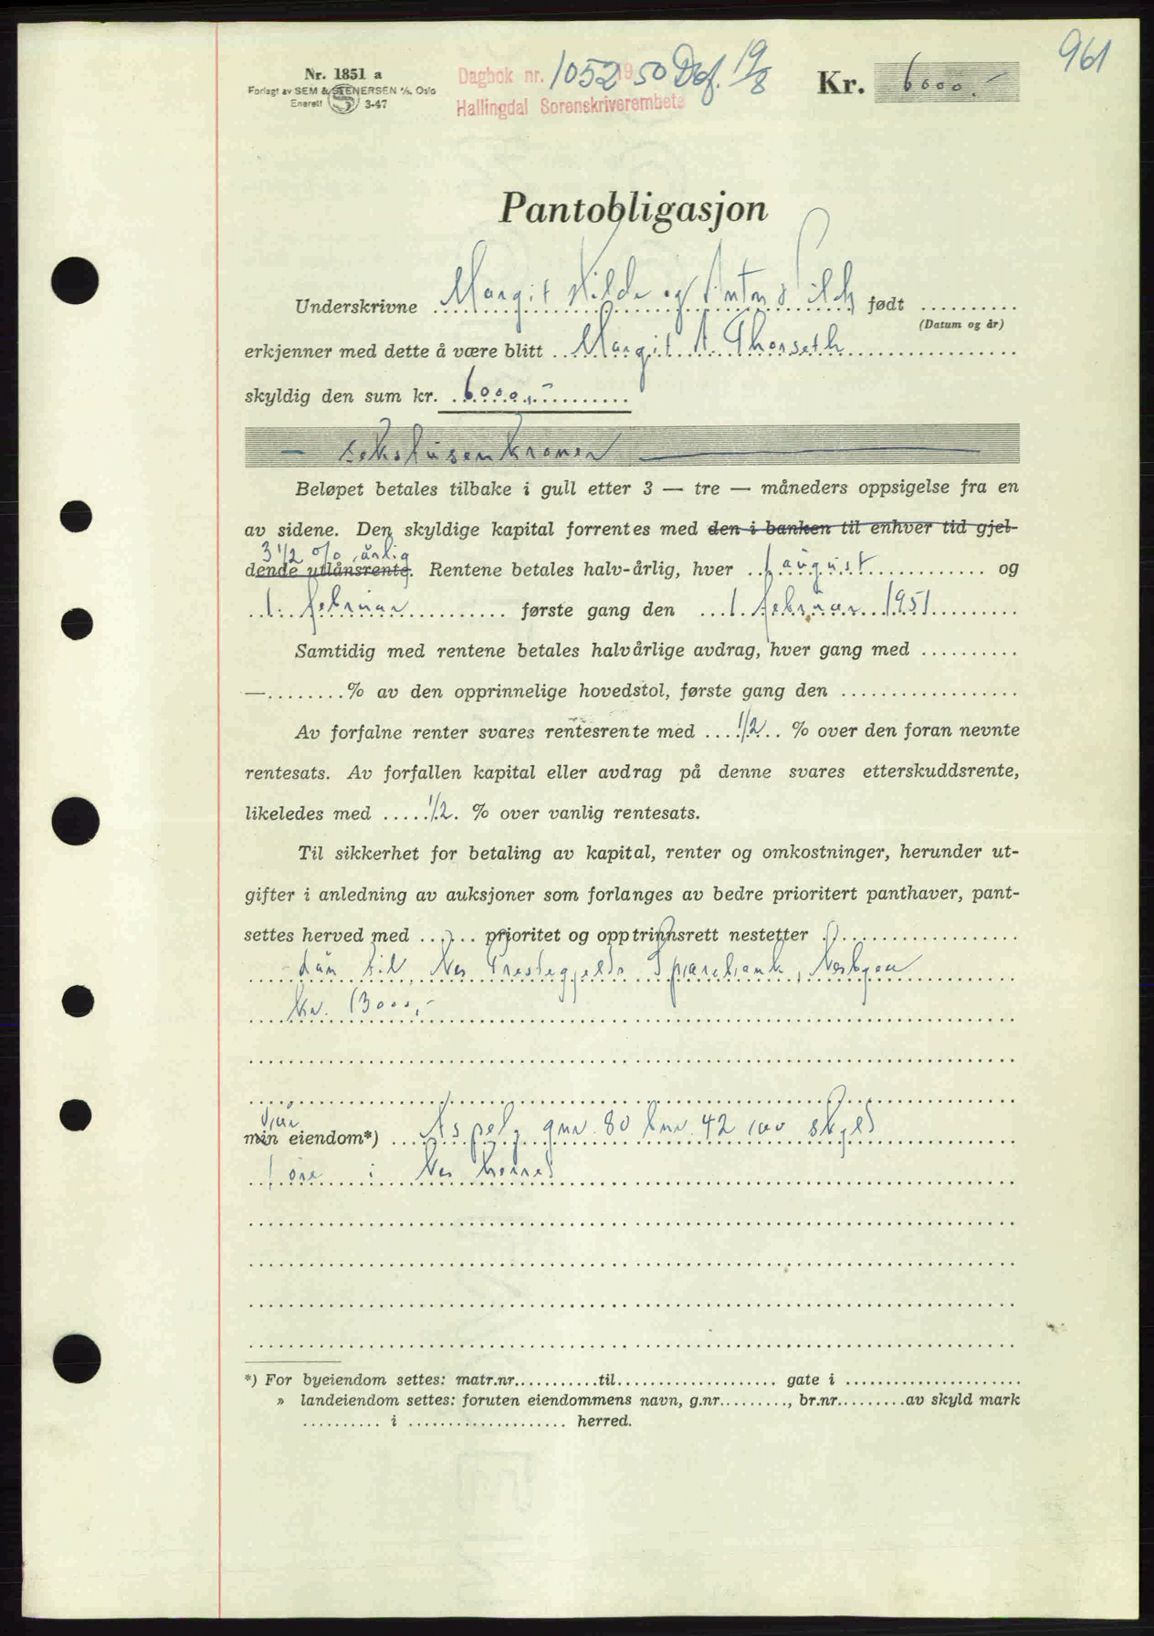 961
Nr. 1851 a
Forlagt av SEM & STENERSEN A/S, Oslo
Enerett 3-47
Dagbok nr. 1052 1950 Def. 19/8
Hallingdal Sorenskriverembete
Kr. 6000.-
Pantobligasjon
Underskrivne Margit Kilde og Anton Kilde født ..........
(Datum og år)
erkjenner med dette å være blitt Margit A. Thorseth
skyldig den sum kr. 6000,-
- sekstusenkroner
Beløpet betales tilbake i gull etter 3 — tre — måneders oppsigelse fra en
av sidene. Den skyldige kapital forrentes med den i banken til enhver tid gjel-
3 1/2 % årlig
dende utlånsrente. Rentene betales halv-årlig, hver 1 august og
1. februar første gang den 1. februar 1951
Samtidig med rentene betales halvårlige avdrag, hver gang med ..........
—........% av den opprinnelige hovedstol, første gang den ..................
Av forfalne renter svares rentesrente med 1/2 % over den foran nevnte
rentesats. Av forfallen kapital eller avdrag på denne svares etterskuddsrente,
likeledes med 1/2 % over vanlig rentesats.
Til sikkerhet for betaling av kapital, renter og omkostninger, herunder ut-
gifter i anledning av auksjoner som forlanges av bedre prioritert panthaver, pant-
settes herved med prioritet og opptrinnsrett nestetter
Lån til Nes Prestegjelds Sparebank, Nesbyen
kr. 13000,-
vår
min eiendom*) gnr. 80 bnr. 42 av skyld
1 øre i Nes herred
*) For byeiendom settes: matr.nr...........til................... gate i ......................
» landeiendom settes: foruten eiendommens navn, g.nr........., br.nr.........av skyld mark
.......... i .................... herred.